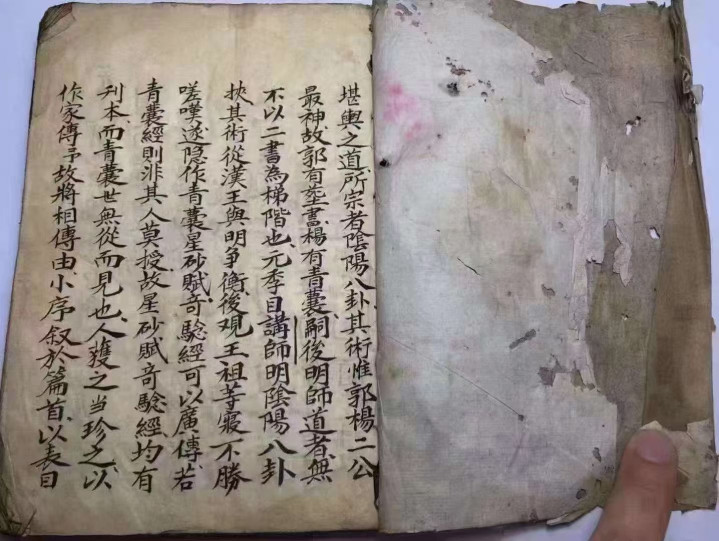 堪輿之道所宗者陰陽八卦其術惟郭楊二公
最神故郭有塟書楊有青囊嗣後明師道者無
不以二書為梯階也元季目講師明陰陽八卦
挾其術從漢王與明爭衡後观王祖等寢不勝
嗟嘆遂隐作青囊星砂賦竒驗經可以廣傳若
青囊經則非其人莫授故星砂賦竒驗經均有
刋本而青囊世無從而見也人獲之当珍之以
作家傳予故將相傳由小序叙於篇首以表目